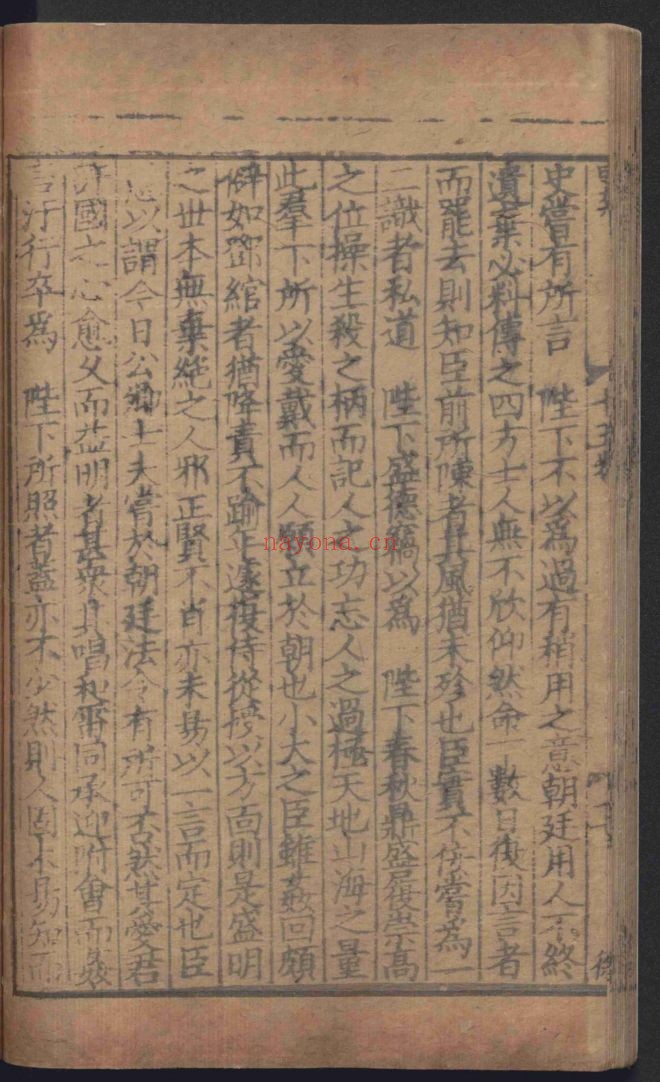 史嘗有所言　陛下不以為過有稍用之意朝廷用人不終
遺棄必料傳之四方士人無不欣仰然命下數日復因言者
而罷去則知臣前所陳者其風猶未殄也臣實不佞嘗為一
二識者私道　陛下盛德竊以為　陛下春秋鼎盛履崇高
之位操生殺之柄而記人之功忘人之過極天地山海之量
此羣下所以愛戴而人人願立於朝也小大之臣雖姦回頗
僻如鄧綰者猶降責不踰年遽復侍從擢以方面則是盛明
之世本無棄絶之人邪正賢不肖亦未易以一言而定也臣
以謂今日公卿士大夫嘗於朝廷法令有所可否然其愛君
國之心愈久而益明者甚衆其唱和雷同承迎附會而姦
言汙行卒為　陛下所照者蓋亦不少然則人固不易知而
nayona.cn